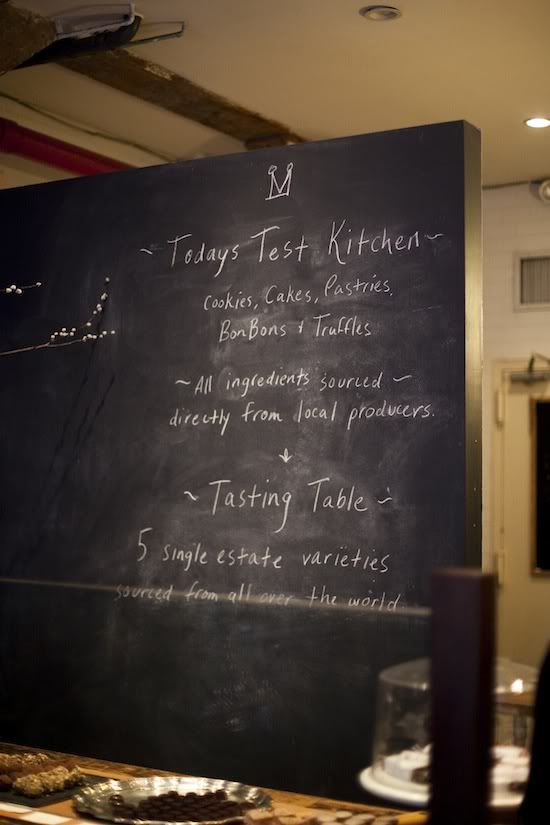 ~ Todays Test Kitchen ~
Cookies, Cakes, Pastries,
BonBons & Truffles
~ All ingredients sourced ~
directly from local producers.
~ Tasting Table ~
5 single estate varieties
sourced from all over the world